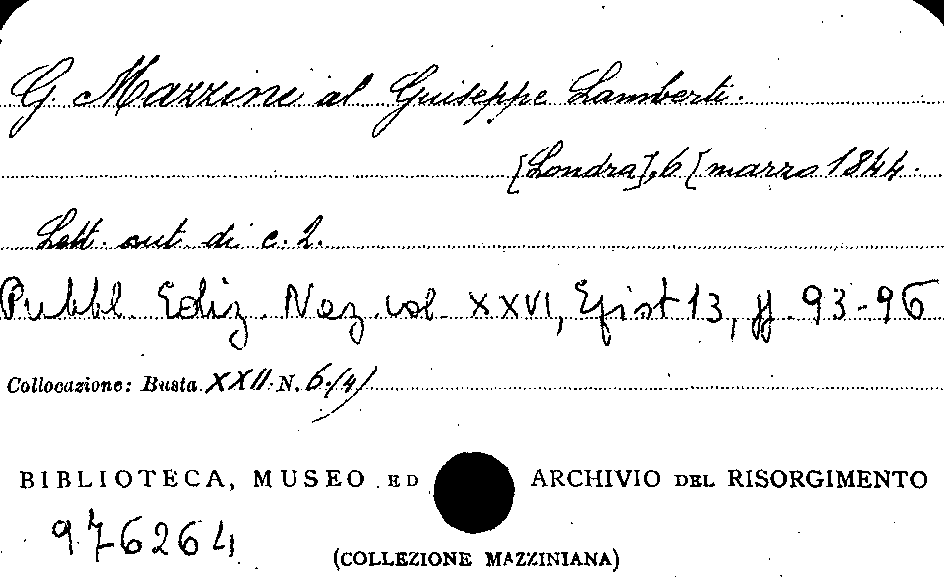 G. Mazzini al Giuseppe Lamberti.
[Londra], 6 [marzo 1844.
Lett. aut. di c. 2.
Pubbl. Ediz. Naz. vol. XXVI, Epist 13, pp. 93-96
Collocazione: Busta XXII N. 6 (4)
BIBLIOTECA, MUSEO ED ARCHIVIO DEL RISORGIMENTO
976264
(COLLEZIONE MAZZINIANA)